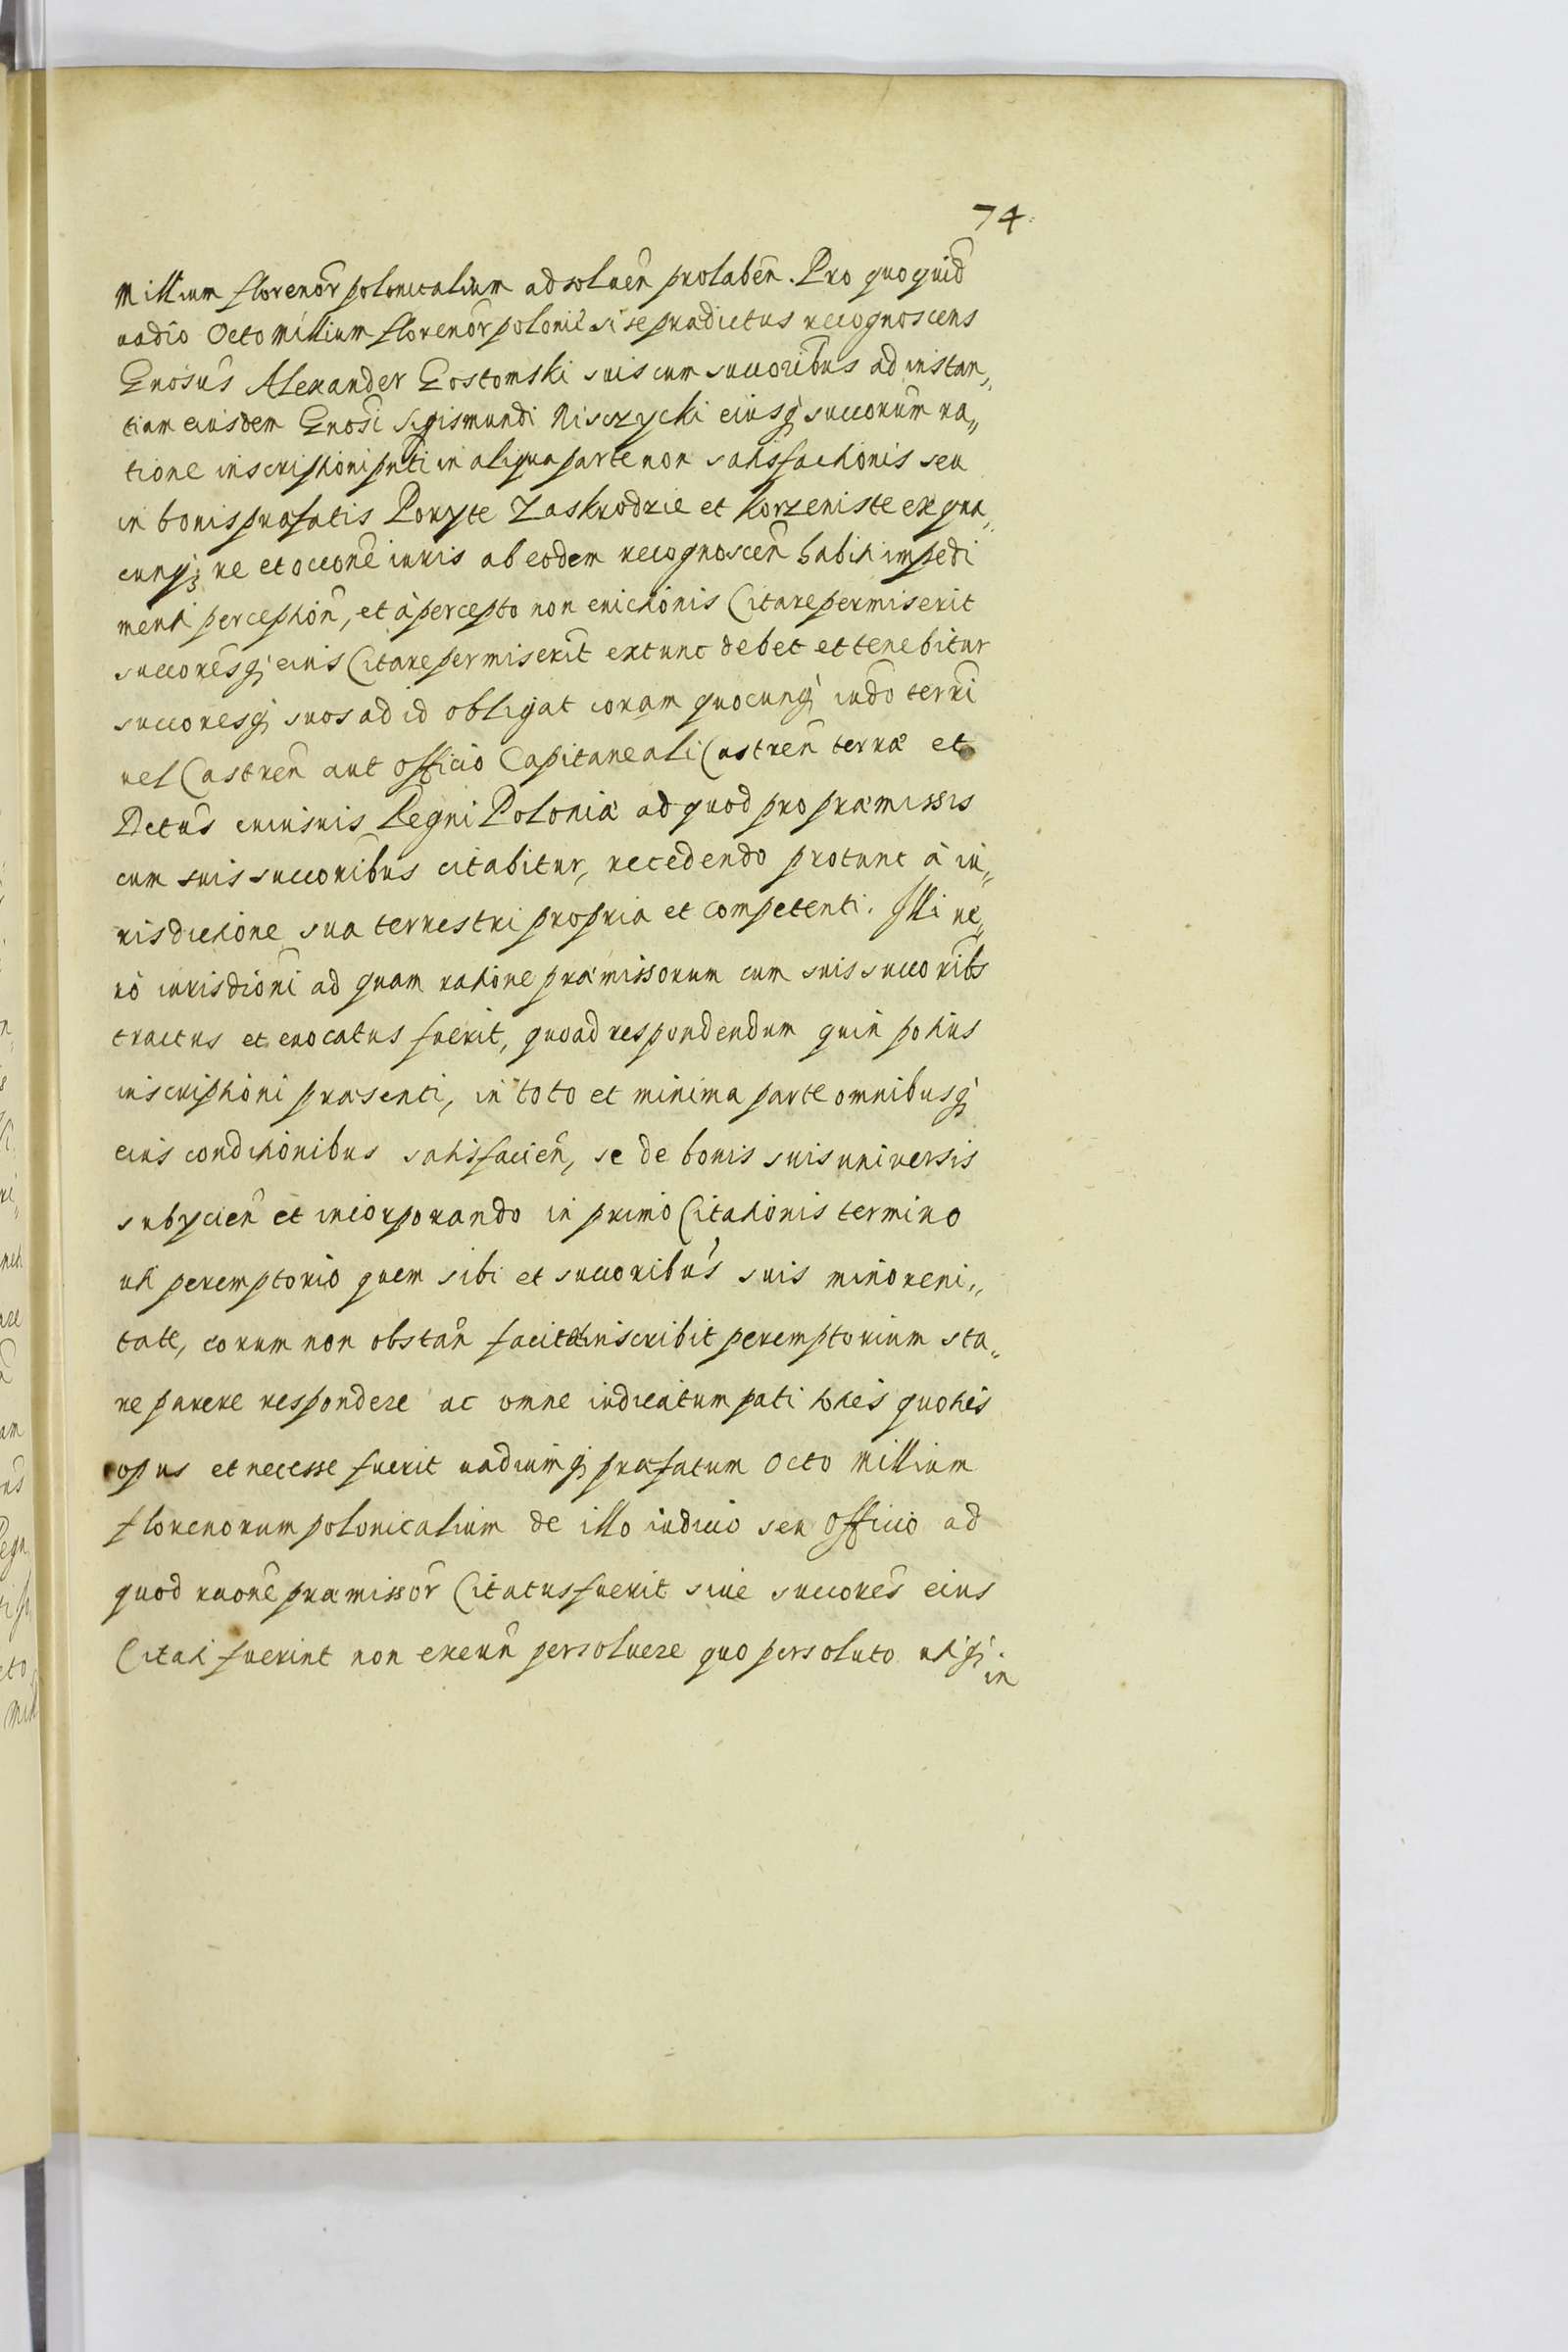 74.
Millium florenor polonicalium ad soluen prolaben. Pro quoquid
uadio Octo Millium florenor polonil si se prædictus recognoscens
Gnosus Alexander Gostomski suis cum succoribus ad instan„
tiam eiusdem Gnosi Sigismundi Nisczycki eiusq succorum ra„
tione inscriptioni pnti in aliqua parte non satisfactionis seu
in bonis præfatis Poryte Zaskrodzie et Korzeniste ex qua„
cunq; re et occone iuris ab eodem recognoscen habiti impedi
menti perception, et à percepto non euictionis Citare permiserit
succoresq; eius Citare permiserit extunc debet et tenebitur
succoresq; suos ad id obligat coram quocunq; iudo terri
uel Castren aut officio Capitaneali Castren terræ et
Dctus cuiusuis Regni Poloniæ ad quod pro præmissis
cum suis succoribus citabitur, recedendo protunc à iu„
risdictione sua terrestri propria et competenti. Illi ue„
rò iurisdioni ad quam ratione præmissorum cum suis succoribs
tractus et euocatus fuerit, quoad respondendum quin potius
inscriptioni præsenti, in toto et minima parte omnibusq;
eius conditionibus satisfacien, se de bonis suis uniuersis
subycien et incorporando in primo Citationis termino
uti peremptorio quem sibi et succoribus suis minoreni„
tate, eorum non obstan facit et inscribit peremptorium sta„
re parere respondere ac omne iudicatum pati toties quoties
opus et necesse fuerit uadiumq; præfatum Octo Millium
florenorum polonicalium de illo iudicio seu Officio ad
quod raone præmissor Citatus fuerit siue succores eius
Citati fuerint non exeun persoluere quo persoluto utiq;
in